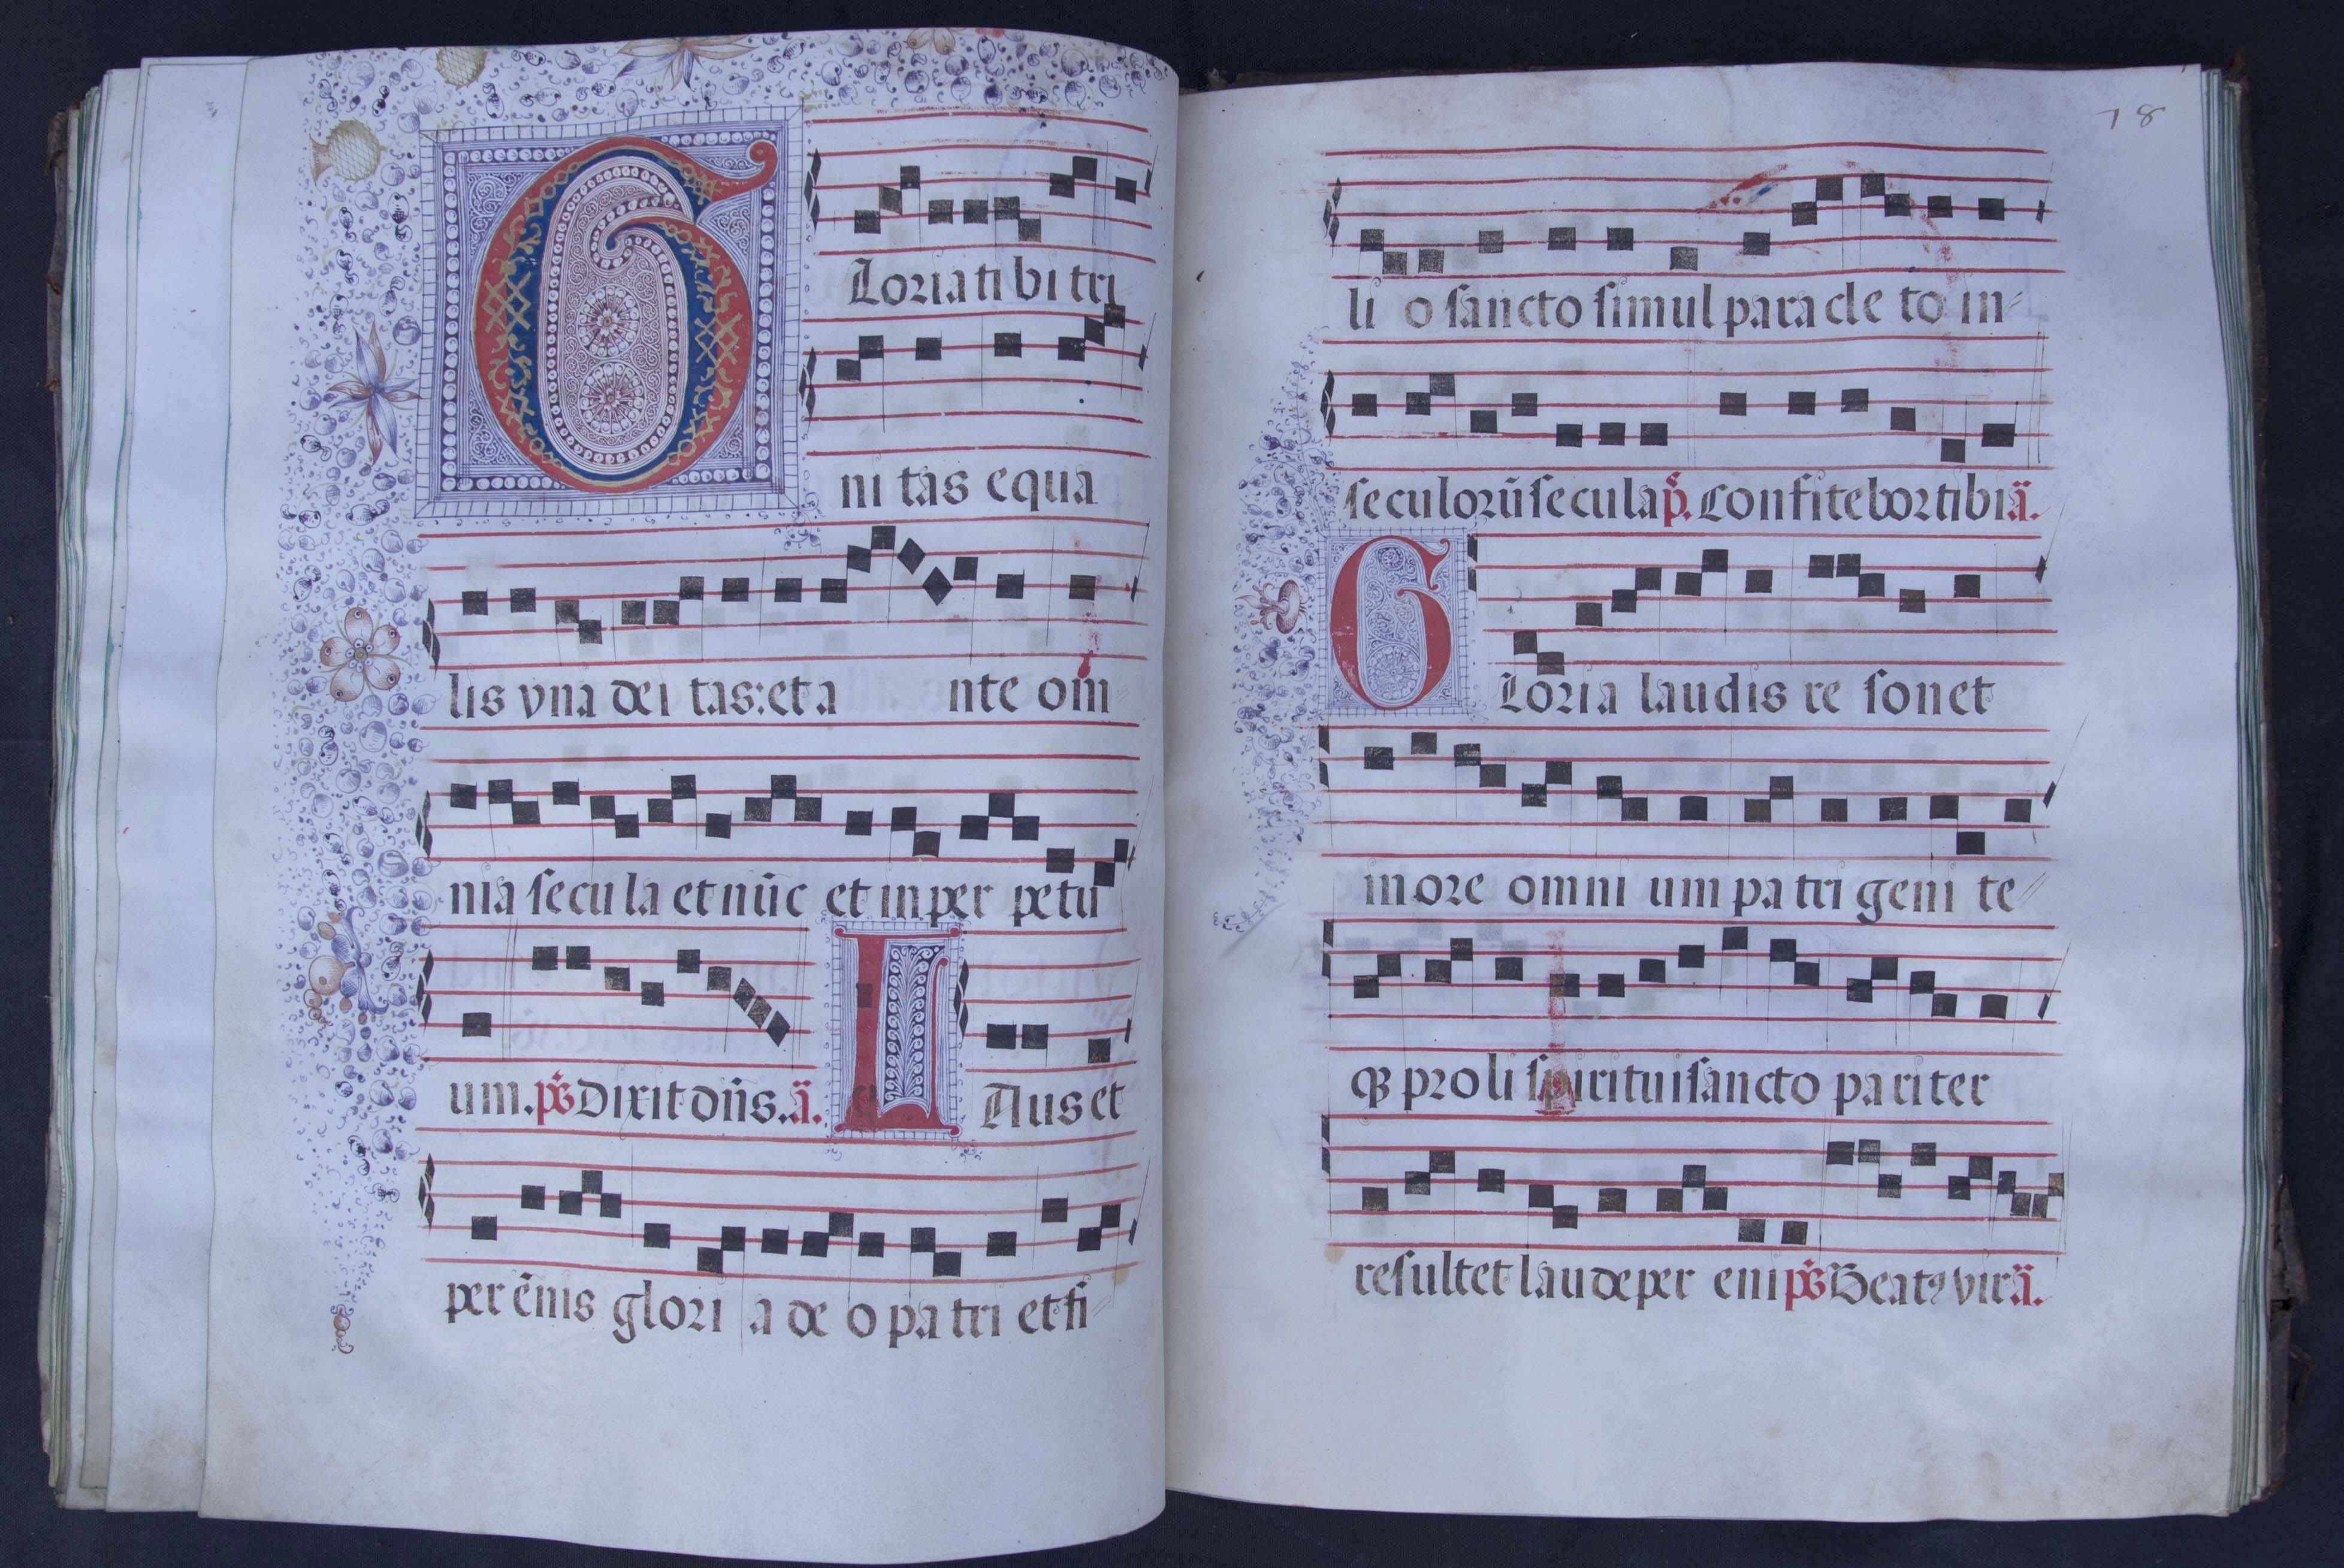 Gloria ti bi tri
ni tas equa
lis vna dei tas: et a nte om
nia secu la et nūc et in per petu
um. ps̄ Dixit dn̄s. ā. Laus et
per ēnis glori a de o pa tri et fi
18
li o sancto simul para cle to in
seculorū secula p̄. Confitebor tibi ā.
Gloria laudis re sonet
in ore omni um pa tri geni te
qꝫ pro li spiritui sancto pariter
resultet laude per eni ps̄ Beatꝰ vir ā.